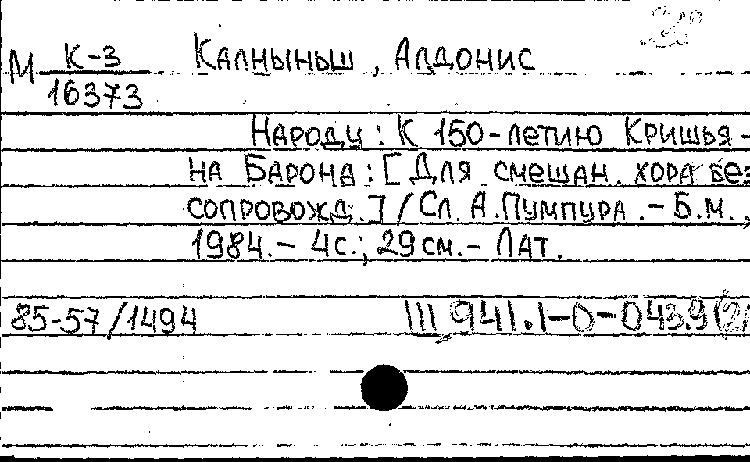 М К-3 Калныньш, Алдонис
16373
Народу: К 150-летию Кришья-
на Барона: [Для смешан. хора без
сопровожд.] / Сл. А. Пумпура. - Б.м.,
1984. - 4с.; 29см. - Лат.
85-57/1494 III 941.1-0-043.9(2)